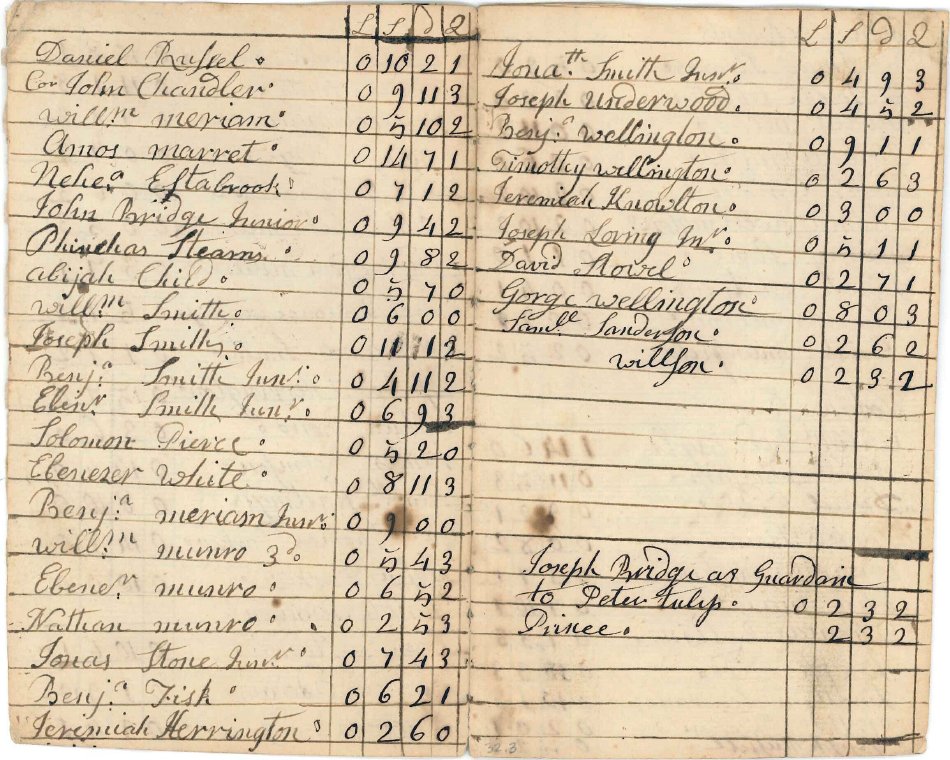 L S d Q
Daniel Russel 0 10 2 1
Cor John Chandler 0 9 11 3
Will.m meriam 0 5 10 2
Amos marret 0 14 7 1
Nehe.a Estabrook 0 7 1 2
John Bridge Junior 0 9 4 2
Phinehas Stearns 0 9 8 2
abijah Child 0 5 7 0
will.m Smith 0 6 0 0
Joseph Smith 0 11 11 2
Benj.a Smith Jun.r 0 4 11 2
Eben.r Smith Jun.r 0 6 9 3
Solomon Pierce 0 5 2 0
Ebenezer White 0 8 11 3
Benj.a meriam Jun.r 0 9 0 0
will.m munro 3d 0 5 4 3
Ebene.r munro 0 6 5 2
Nathan munro 0 2 5 3
Jonas Stone Jun.r 0 7 4 3
Benj.a Fisk 0 6 2 1
Jeremiah Herrington 0 2 6 0
L S d Q
Jona.th Smith Jun.r 0 4 9 3
Joseph Underwood 0 4 5 2
Benj.a wellington 0 9 1 1
Timothy wellington 0 2 6 3
Jeremiah Knowlton 0 3 0 0
Joseph Loving Jn.r 0 5 1 1
David Stowel 0 2 7 1
Gorge wellington 0 8 0 3
Sam.ll Sanderson 0 2 6 2
willson 0 2 3 2
Joseph Bridge as Guardain
to Peter tulip 0 2 3 2
Prince 2 3 2
32.3